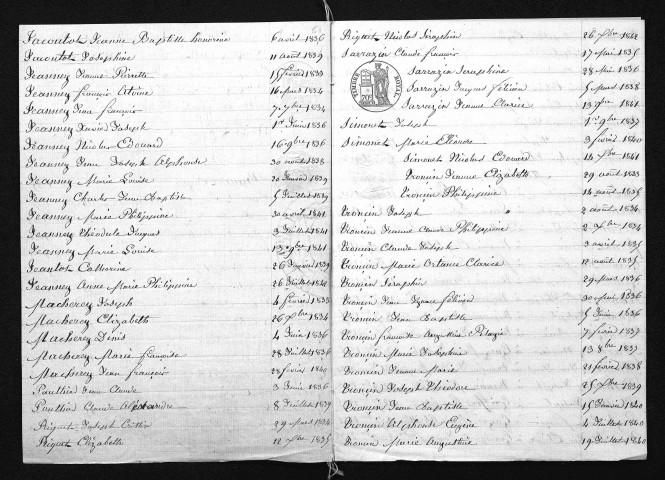 Jacoutot Jeanne Baptiste honorine 6 avril 1836
Jacoutot Josephine 11 aout 1839
Jeanney Jeanne Pierrette 15 fevrier 1833
Jeanney françois Antoine 16 mars 1834
Jeanney Jean françois 7 7bre 1834
Jeanney Xavier Joseph 1er Juin 1836
Jeanney Nicolas Edouard 16 9bre 1836
Jeanney Jean Joseph Alphonse 30 1838
Jeanney Marie Louise 20 Janvier 1839
Jeanney Charles Jean Baptiste 5 Juillet 1839
Jeanney Marie Philippine 30 avril 1841
Jeanney théodule 3 Juillet 1841
Jeanney Marie Louise 13 9bre 1841
Jeantot Catherine 26 1839
Jeanney Anne Marie Philippine 26 Juillet
Macherey Joseph 4 fevrier 1833
Macherey Elizabeth 26 1834
Macherey Denis 4 Juin 1836
Macherey Marie françoise 28 Juillet 1836
Macherey Jean françois 28 fevrier 1840
Paulthier Jean Claude 3 Juin 1836
Paulthier Claude Alexandre 8 Juillet 1839
Piquet Joseph 29 Mars 1834
Piquet Elizabeth 12 1835
Piquet Nicolas Seraphin 26
Sarrazin Claude françois 17 Mai 1835
TIMBRE ROYAL
Sarrazin Seraphine 28 Mai 1836
Sarrazin Jacques félicien 5 Mars 1838
Sarrazin Jeanne Clarice 13 1841
Simonet Joseph 1er 9bre 1837
Simonet Marie Eléonore 3 fevrier 1840
Simonet Nicolas Edouard 15 1841
Vroncin Jeanne Elizabeth 29 aout 1833
Vroncin Philippine 14 aout 1835
Vroncin Joseph 2 aout 1834
Vroncin Jeanne Claude Philippine 2 1834
Vroncin Claude Joseph 3 avril 1835
Vroncin Marie Ortance Clarice 12 aout 1835
Vroncin Seraphin 29 Mars 1836
Vroncin Jean 30 Mai 1836
Vroncin Jean Baptiste 5 Juin 1836
Vroncin françoise Pelagie 7 fevrier 1837
Vroncin Marie Josephine 13 8bre 1837
Vroncin Jeanne Marie 21 fevrier 1838
Vroncin Joseph théodore 25 1839
Vroncin Jean Baptiste 15 Janvier 1840
Vroncin Alphonse Eugène 4 Juillet 1840
Vroncin Marie Augustine 19 Juillet 1840